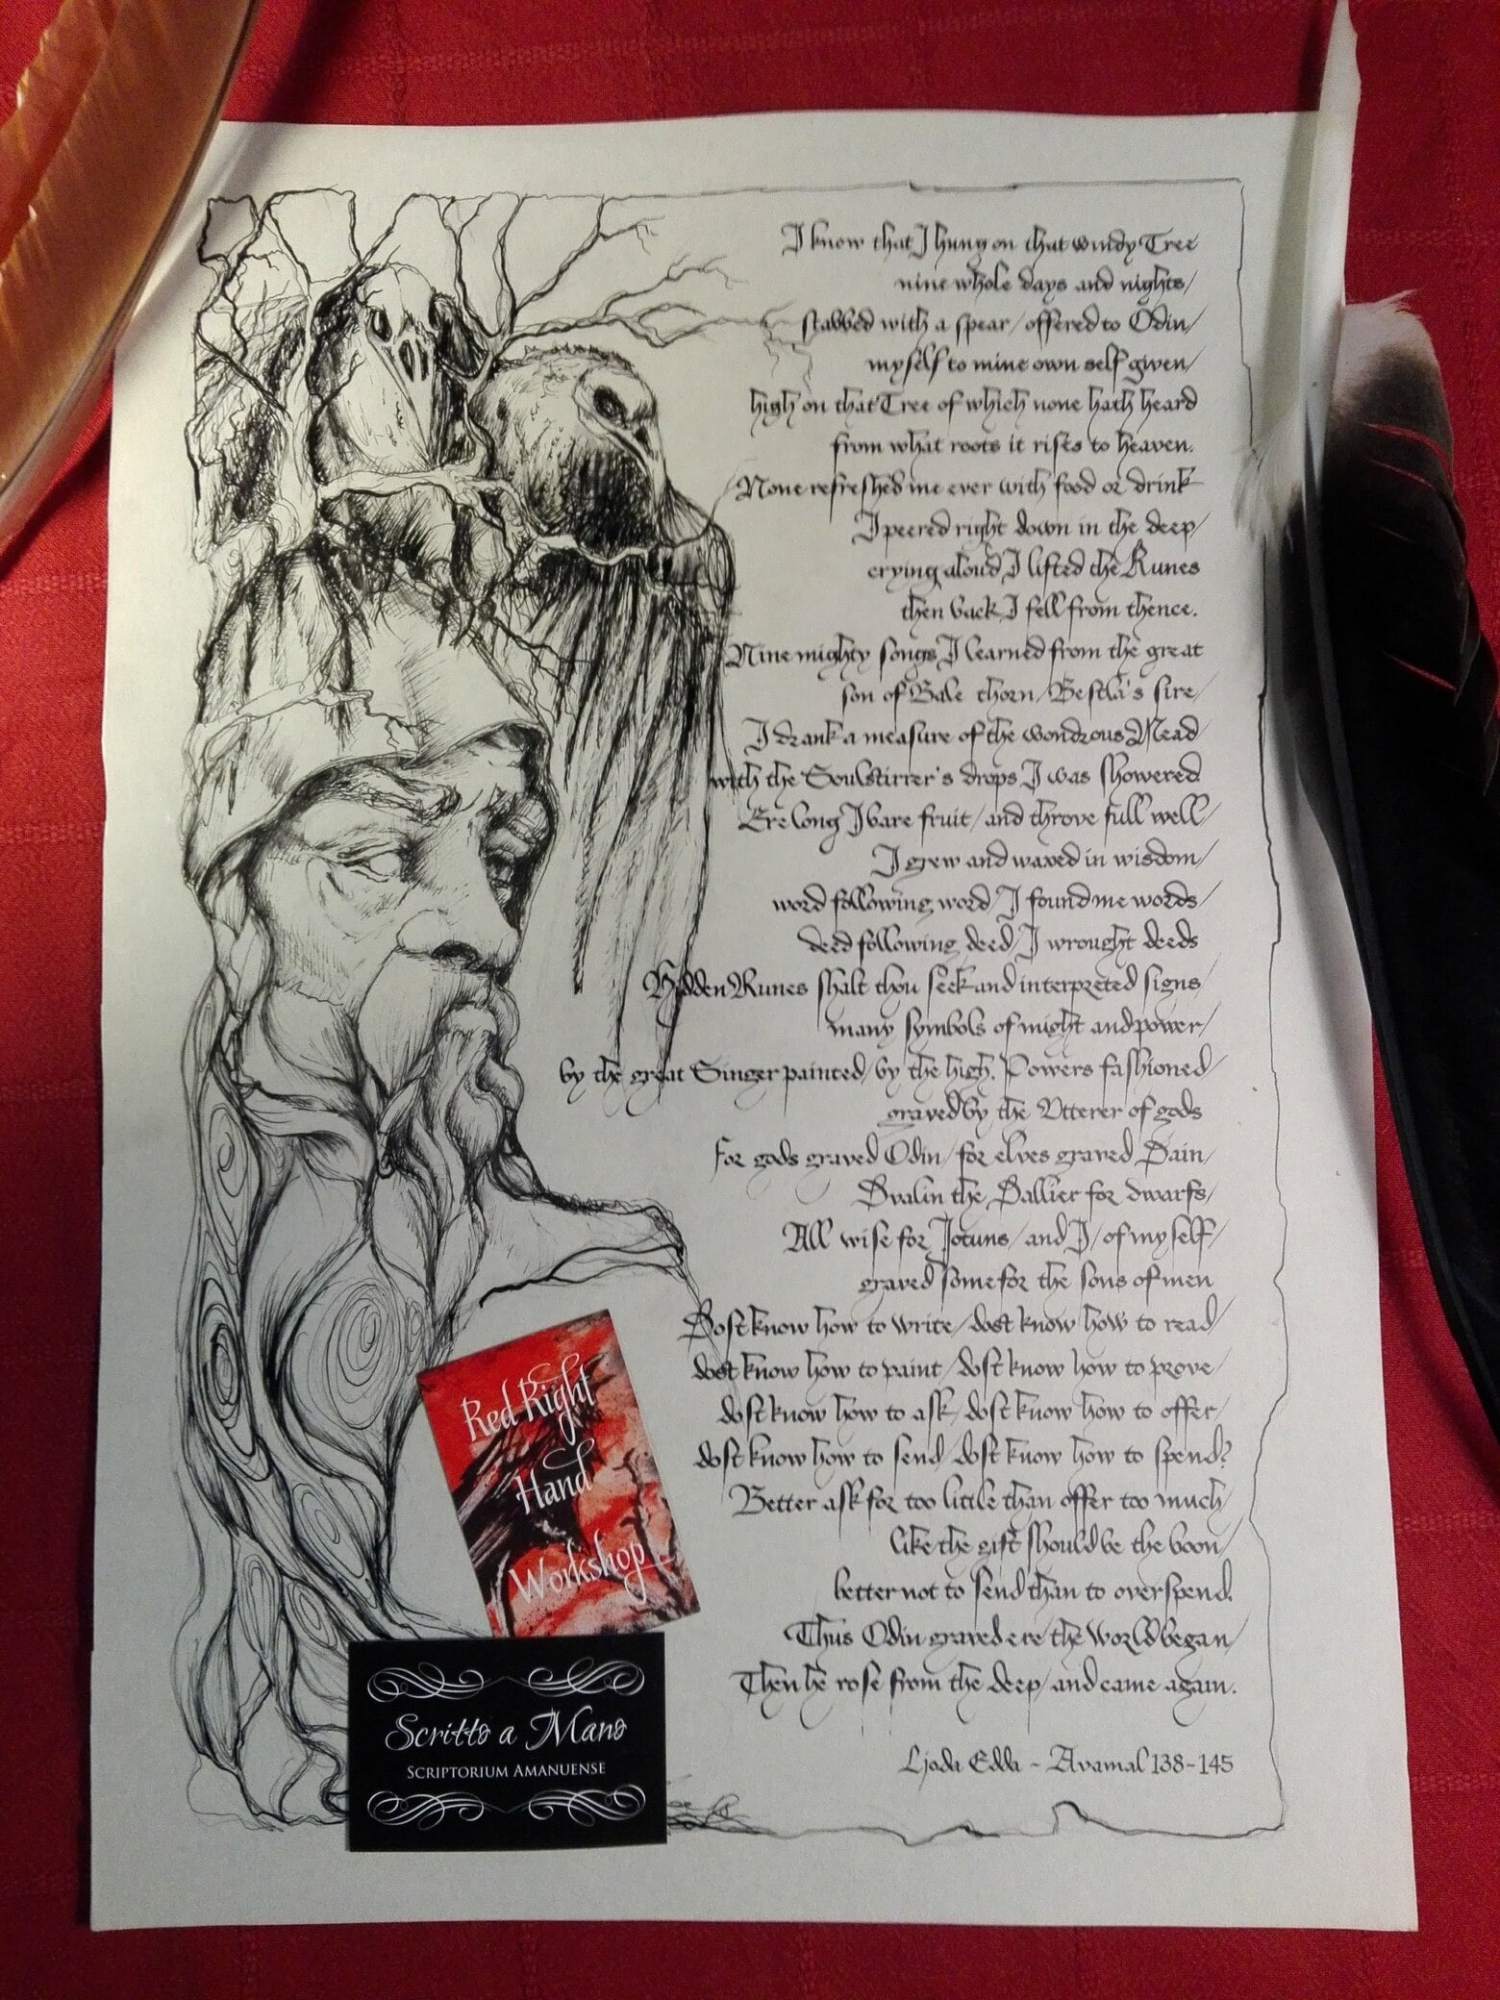 I know that I hung on that windy Tree
nine whole days and nights/
stabbed with a spear/ offered to Odin/
myself to mine own self given/
high on that Tree of which none hath heard
from what roots it rises to heaven.
None refreshed me ever with food or drink
I peered right down in the deep/
crying aloud I lifted the Runes
then back I fell from thence.
Nine mighty songs I learned from the great
son of Bale thorn/ Bestla's sire/
I drank a measure of the wondrous Mead
with the Soulstirrer's drops I was showered
Ere long I bare fruit/ and throve full well/
I grew and waxed in wisdom/
word following word/ I found me words/
deed following deed/ I wrought deeds
Hidden Runes shalt thou seek and interpreted signs
many symbols of might and power/
by the great Singer painted/ by the high. Powers fashioned/
graved by the Utterer of gods
for gods graved Odin/ for elves graved Dain/
Dvalin the Dallier for dwarfs/
All wise for Jotuns/ and I/ of myself/
graved some for the sons of men
Dost know how to write/ dost know how to read/
dost know how to paint/ dost know how to prove/
dost know how to ask/ dost know how to offer/
dost know how to send/ dost know how to spend?
Better ask for too little than offer too much/
like the gift should be the boon/
better not to send than to overspend.
Thus Odin graved ere the World began/
Then he rose from the deep/ and came again.
Ljoda Edda - Avamal 138-145
Red Right
Hand
Workshop
Scritto a Mano
SCRIPTORIUM AMANUENSE